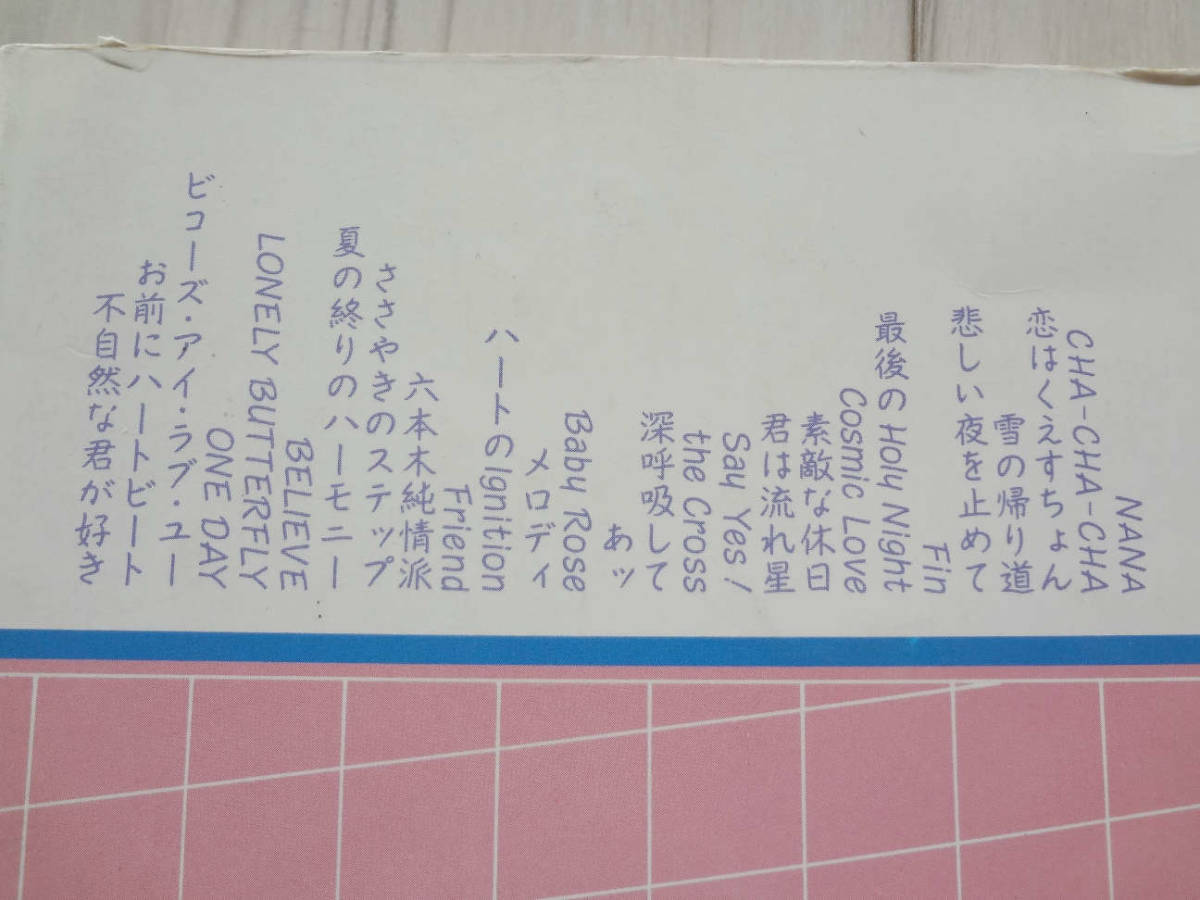 NANA
CHA-CHA-CHA
恋はくえすちょん
雪の帰り道
悲しい夜を止めて
Fin
最後のHoly Night
Cosmic Love
素敵な休日
君は流れ星
Say Yes!
the Cross
深呼吸して
あッ
Baby Rose
メロディ
ハートのIgnition
Friend
六本木純情派
ささやきのステップ
夏の終りのハーモニー
BELIEVE
LONELY BUTTERFLY
ONE DAY
ビコーズ・アイ・ラブ・ユー
お前にハートビート
不自然な君が好き